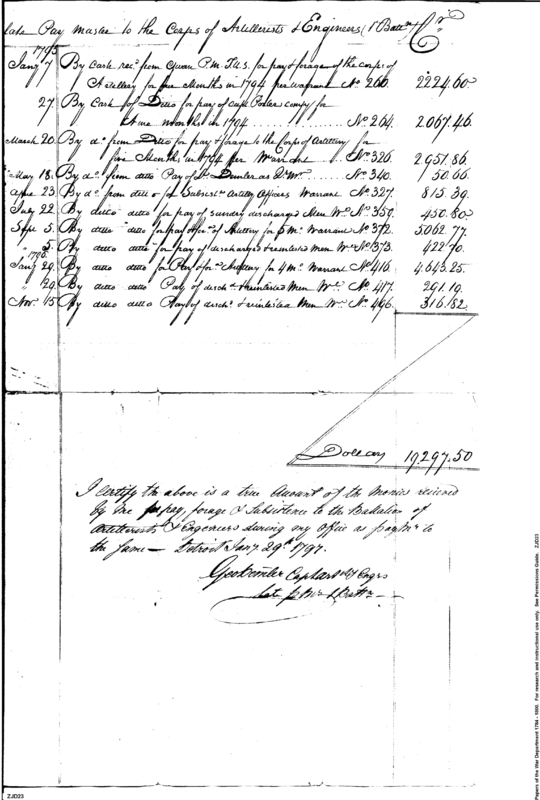 late Pay master to the Corps of Artillerists & Engineers (1 Battn) Cr
1795
Jany 7 By Cash recd from Quar P.M. for pay & forage of the corps of
Artillery for five Months in 1794 per warrant No 260. 2224.60
27 By Cash of Ditto for pay of Capt compy for
five months in 1794 No 264. 2067.46
March 20. By do from Ditto for pay & forage to the Corps of Artillery for
five Months in 1794 per Warrant No 326. 2951.86
May 18. By do from ditto Pay of Lt as Qr Mr No 340. 50.66
23 By do from ditto for Subsists Artillery Officers Warrant No 327 815.39
July 22 By ditto ditto for pay of sundry discharged Men Wt No 350. 450.80
Sept 5. By ditto ditto for pay of Artillery for 6 mo. Warrant No 372. 5062.77
" 5. By ditto ditto for pay of discharged & reinlisted Men Wt No 373. 422.70
1796
Jany 29. By ditto ditto for Pay & for Artillery for 4 Mo. Warrant No 416. 4643.25
" 29. By ditto ditto Pay of disch. & reinlisted Men Wt No 417. 291.19
Novr 15 By ditto ditto Pay of disch. & reinlisted Men Wt No 496. 316.82
Dollars 19,297.50
I certify the above is a true Amount of the Monies received
by me for pay, forage & Subsistence to the Battalion of
Artillerists & Engeniers during my Office as pay Mr to
the Same — Detroit Jany 29th 1797.
Geo Demler Capt Art & Engrs
late P Mr 1 Battn
ZJD23
Papers of the War Department 1784 - 1800. For research and instructional use only. See Permissions Guide. ZJD23